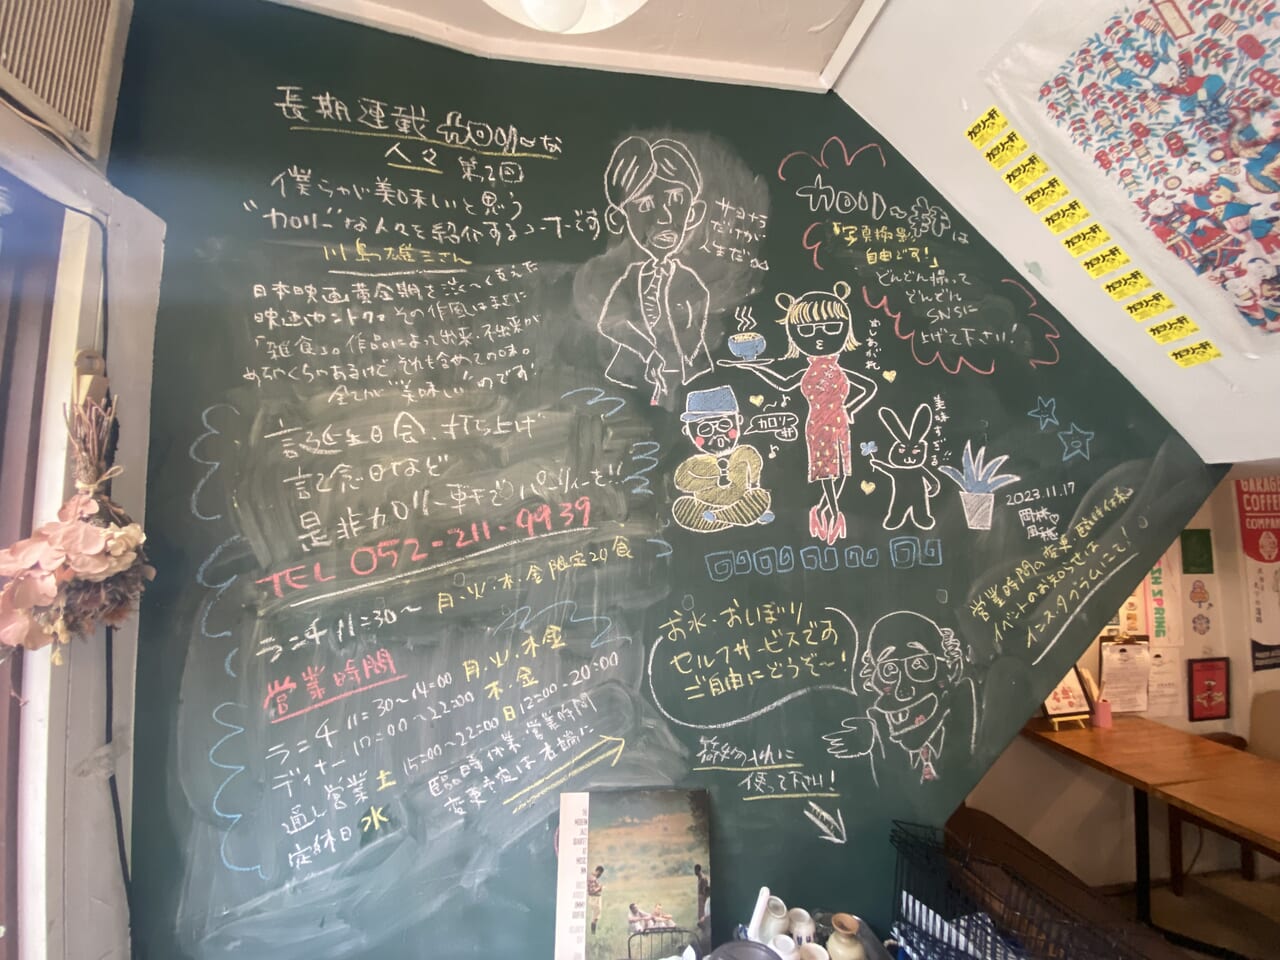 長期連載 カロリーな
人々 第2回
僕らが美味しいと思う
"カロリー"な人々を紹介するコーナーです
川島雄三さん
日本映画黄金期を渋〜く支えた
映画カントク。その作風はまさに
「雑食」。作品によって出来・不出来が
めちゃくちゃあるけど、それも含めての味。
全てが"美味しい"のです!
誕生日会、打ち上げ
記念日など
是非カロリー軒でパーリーを!!
TEL 052-211-9939
ランチ 11:30〜 月・火・木・金 限定20食
営業時間
ランチ 11:30〜14:00 月・火・木・金
ディナー 17:00〜22:00 木・金
通し営業 土 15:00〜22:00 日 12:00-20:00
定休日 水
臨時休業、営業時間
変更等は右端に
サヨナラ
だけが
人生だ
カロリー軒は
「写真撮影
自由です!」
どんどん撮って
どんどん
SNSに
上げて下さい!
めしあがれ
カロリー軒
美味すぎる!!
2023.11.17
営業時間の変更・臨時休業
イベントのお知らせは
インスタグラムにて!
お水・おしぼり
セルフサービスです
ご自由にどうぞ〜!
荷物入れに
使って下さい!
カロリー軒
カロリー軒
カロリー軒
カロリー軒
カロリー軒
カロリー軒
カロリー軒
カロリー軒
カロリー軒
カロリー軒
GARAGE
COFFEE
COMPANY
SPRING
THE
MODERN
JAZZ
QUARTET
AT
MUSIC
INN